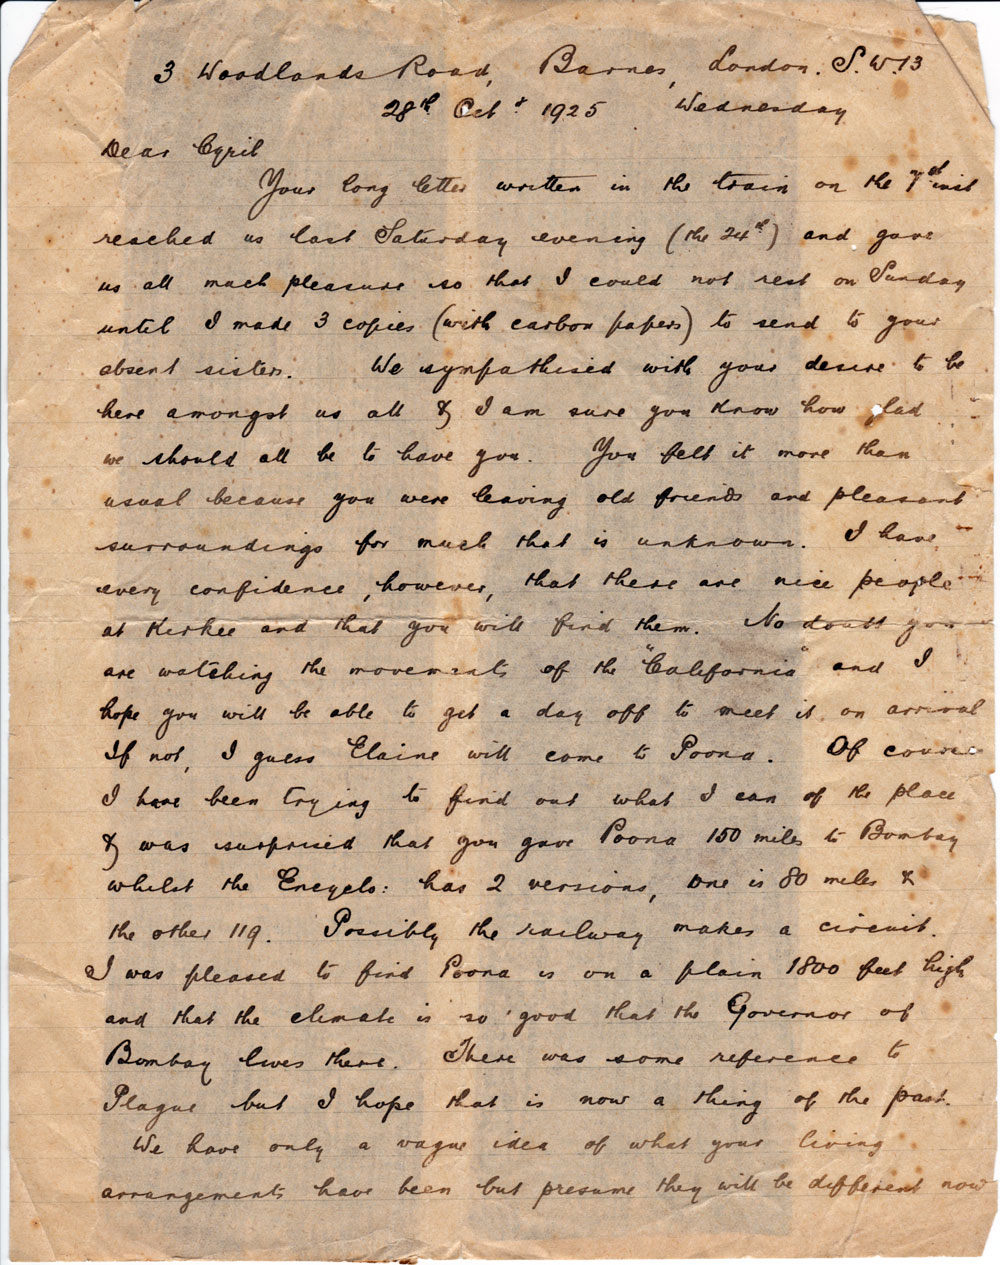 3 Woodlands Road, Barnes, London. S.W.13
28th Oct r 1925 Wednesday
Dear Cyril
Your long letter written in the train on the 7th inst
reached us last Saturday evening (the 24th) and gave
us all much pleasure so that I could not rest on Sunday
until I made 3 copies (with carbon papers) to send to your
absent sisters. We sympathised with your desire to be
here amongst us all & I am sure you know how glad
we should all be to have you. You felt it more than
usual because you were leaving old friends and pleasant
surroundings for much that is unknown. I have
every confidence, however, that there are nice people
at Kirkee and that you will find them. No doubt you
are watching the movements of the "California" and I
hope you will be able to get a day off to meet it on arrival
If not, I guess Elaine will come to Poona. Of course
I have been trying to find out what I can of the place
& was surprised that you gave Poona 150 miles to Bombay
whilst the Encyclo: has 2 versions, one is 80 miles &
the other 119. Possibly the railway makes a circuit.
I was pleased to find Poona is on a plain 1800 feet high
and that the climate is so good that the Governor of
Bombay lives there. There was some reference to
Plague but I hope that is now a thing of the past.
We have only a vague idea of what your living
arrangements have been but presume they will be different now